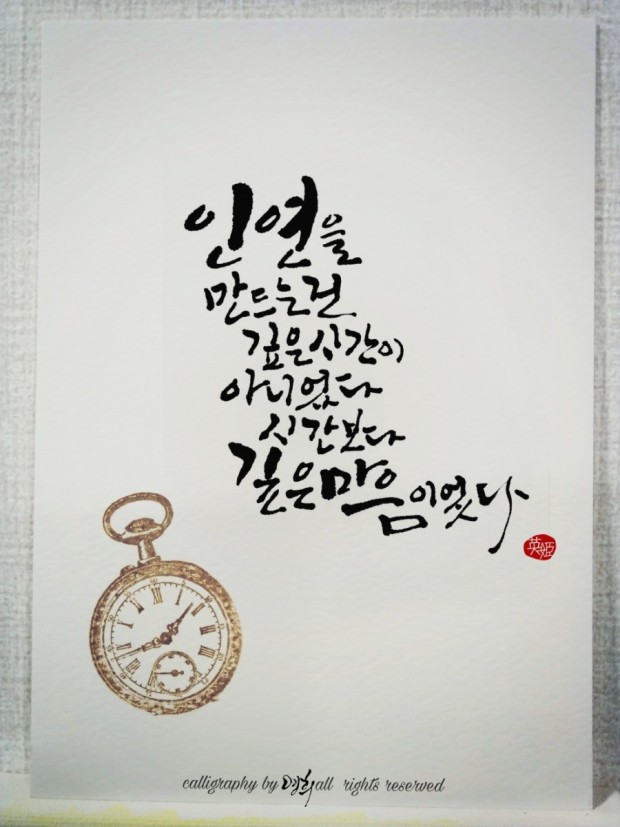 인연을
만드는건
깊은시간이
아니었다
시간보다
깊은마음이었다
英姬
calligraphy by 영희 all rights reserved